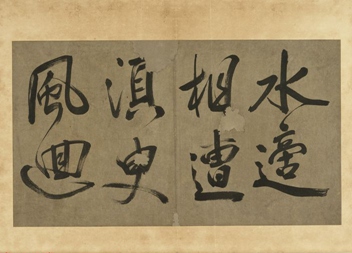 水適
相遭
須臾
風迴